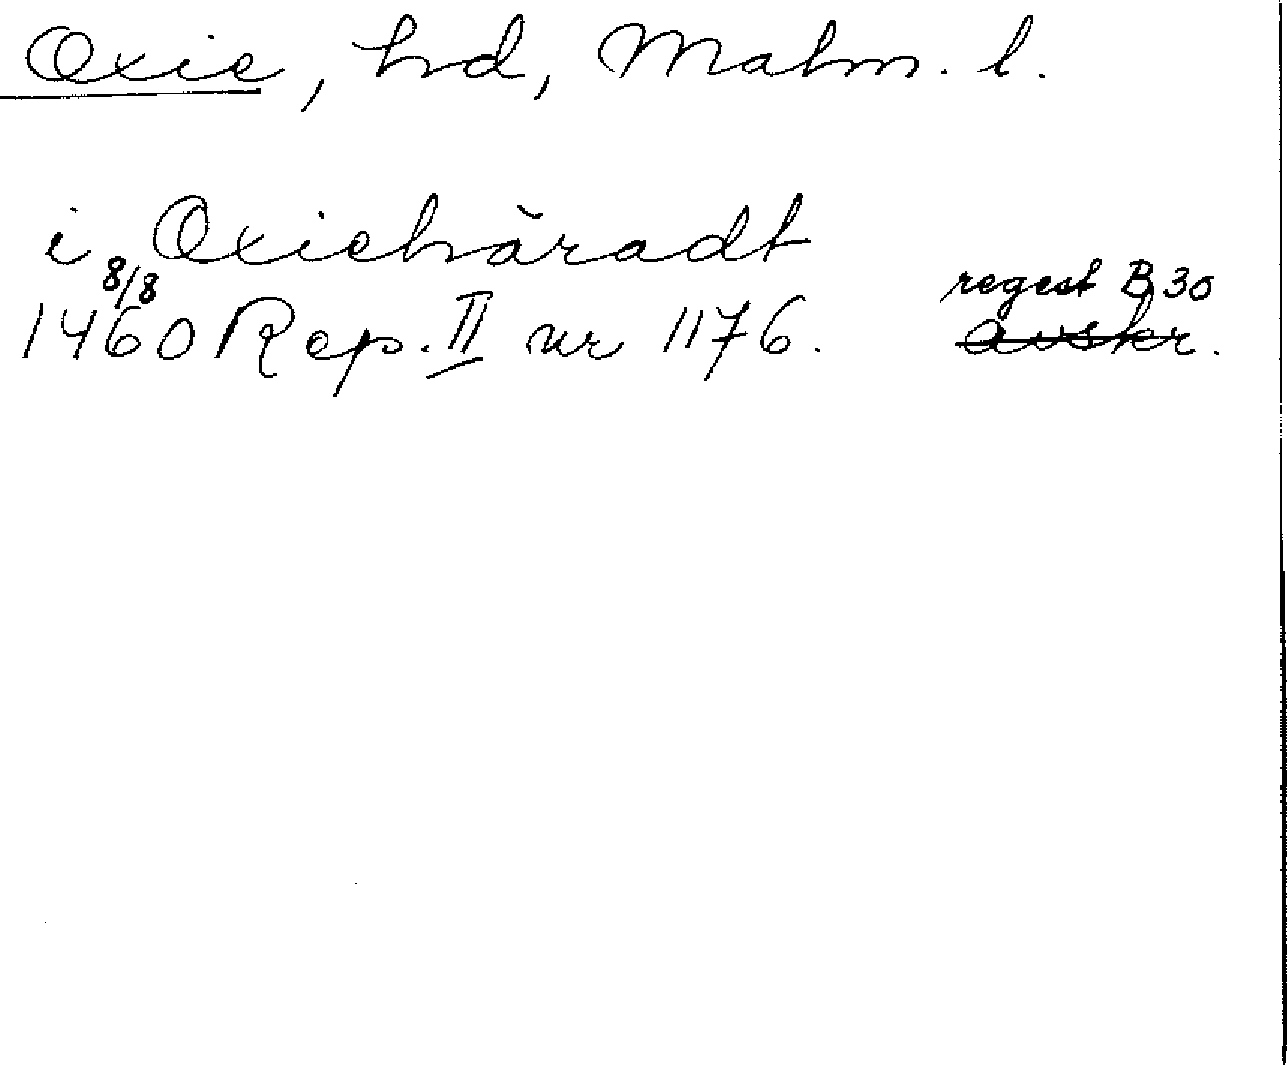 Oxie, hd, Malm. l.
i Oxiehäradt
8/8
1460 Rep. II nr 1176. regest B 30
avskr.